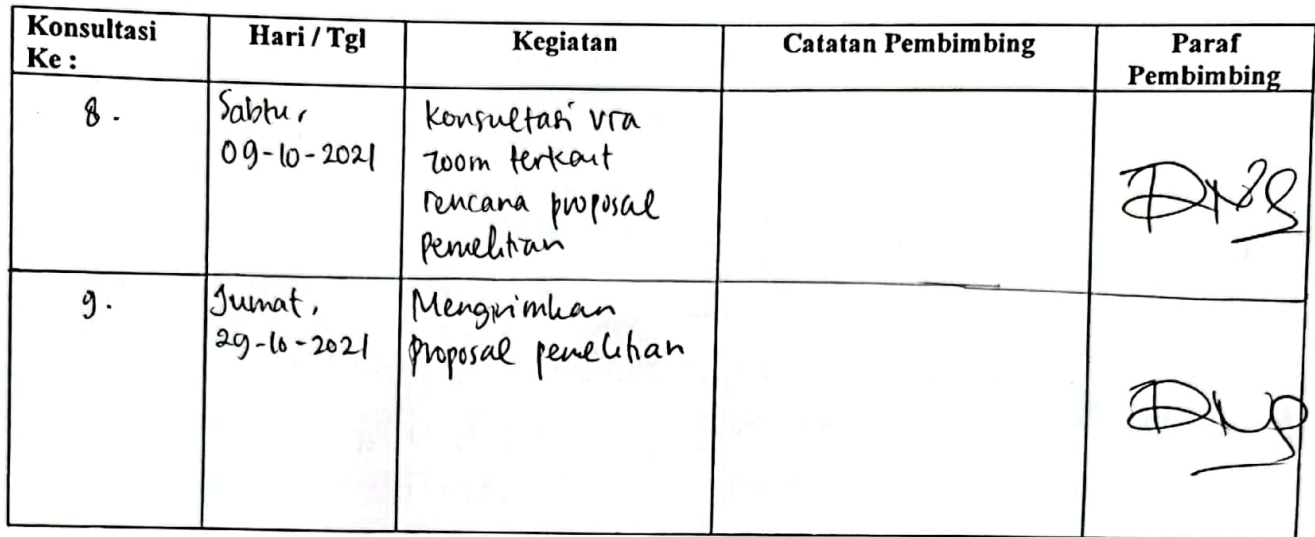 Konsultasi Ke : Hari / Tgl Kegiatan Catatan Pembimbing Paraf Pembimbing
8. Sabtu, Konsultasi via
09-10-2021 zoom terkait
rencana proposal
penelitian
9. Jumat, Mengirimkan
29-10-2021 proposal penelitian